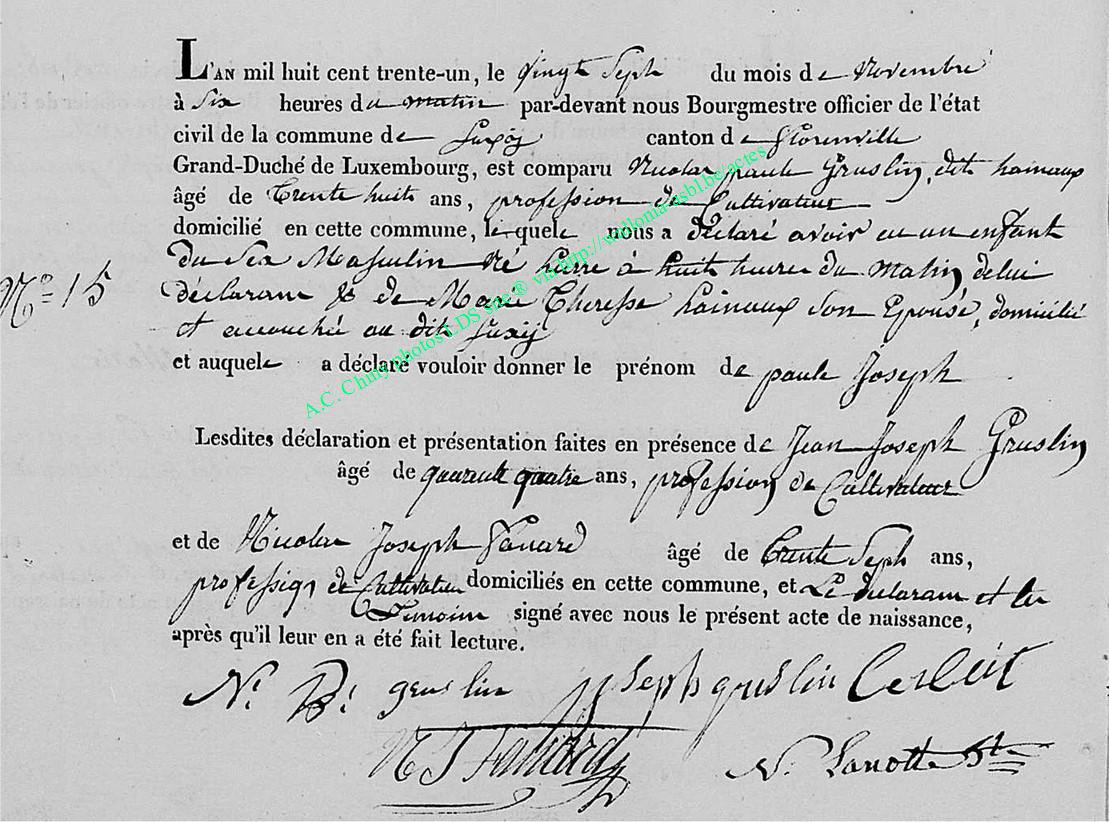 L'AN mil huit cent trente-un, le vingt Seph du mois de Novembre
à Six heures du matin par-devant nous Bourgmestre officier de l'état
civil de la commune de Suxÿ canton de florenville
Grand-Duché de Luxembourg, est comparu Nicolas paule Gruslin, dit hainaux
âgé de Trente huit ans, profession de Cultivateur
domicilié en cette commune, lequele nous a déclaré avoir eu un enfant
du Sex Masculin Né hierre à huit heures du Matin de lui
N° 15
déclarant & de Marie Theresse hainaux Son Epouse, domicilié
et accouchée au dit Suxÿ
et auquele a déclaré vouloir donner le prénom de paule Joseph
Lesdites déclaration et présentation faites en présence de Jean Joseph Gruslin
âgé de quarante quatre ans, profession de Cultivateur
et de Nicolas Joseph âgé de trente Seph ans,
profession de Cultivateur domiciliés en cette commune, et Le declarant et les
Temoins signé avec nous le présent acte de naissance,
après qu'il leur en a été fait lecture.
N. P. gruslin joseph gruslin
N J
N. Lanotte
A.C. Chiny photos LDS site ® via http://wallonia-asbl.be/actes